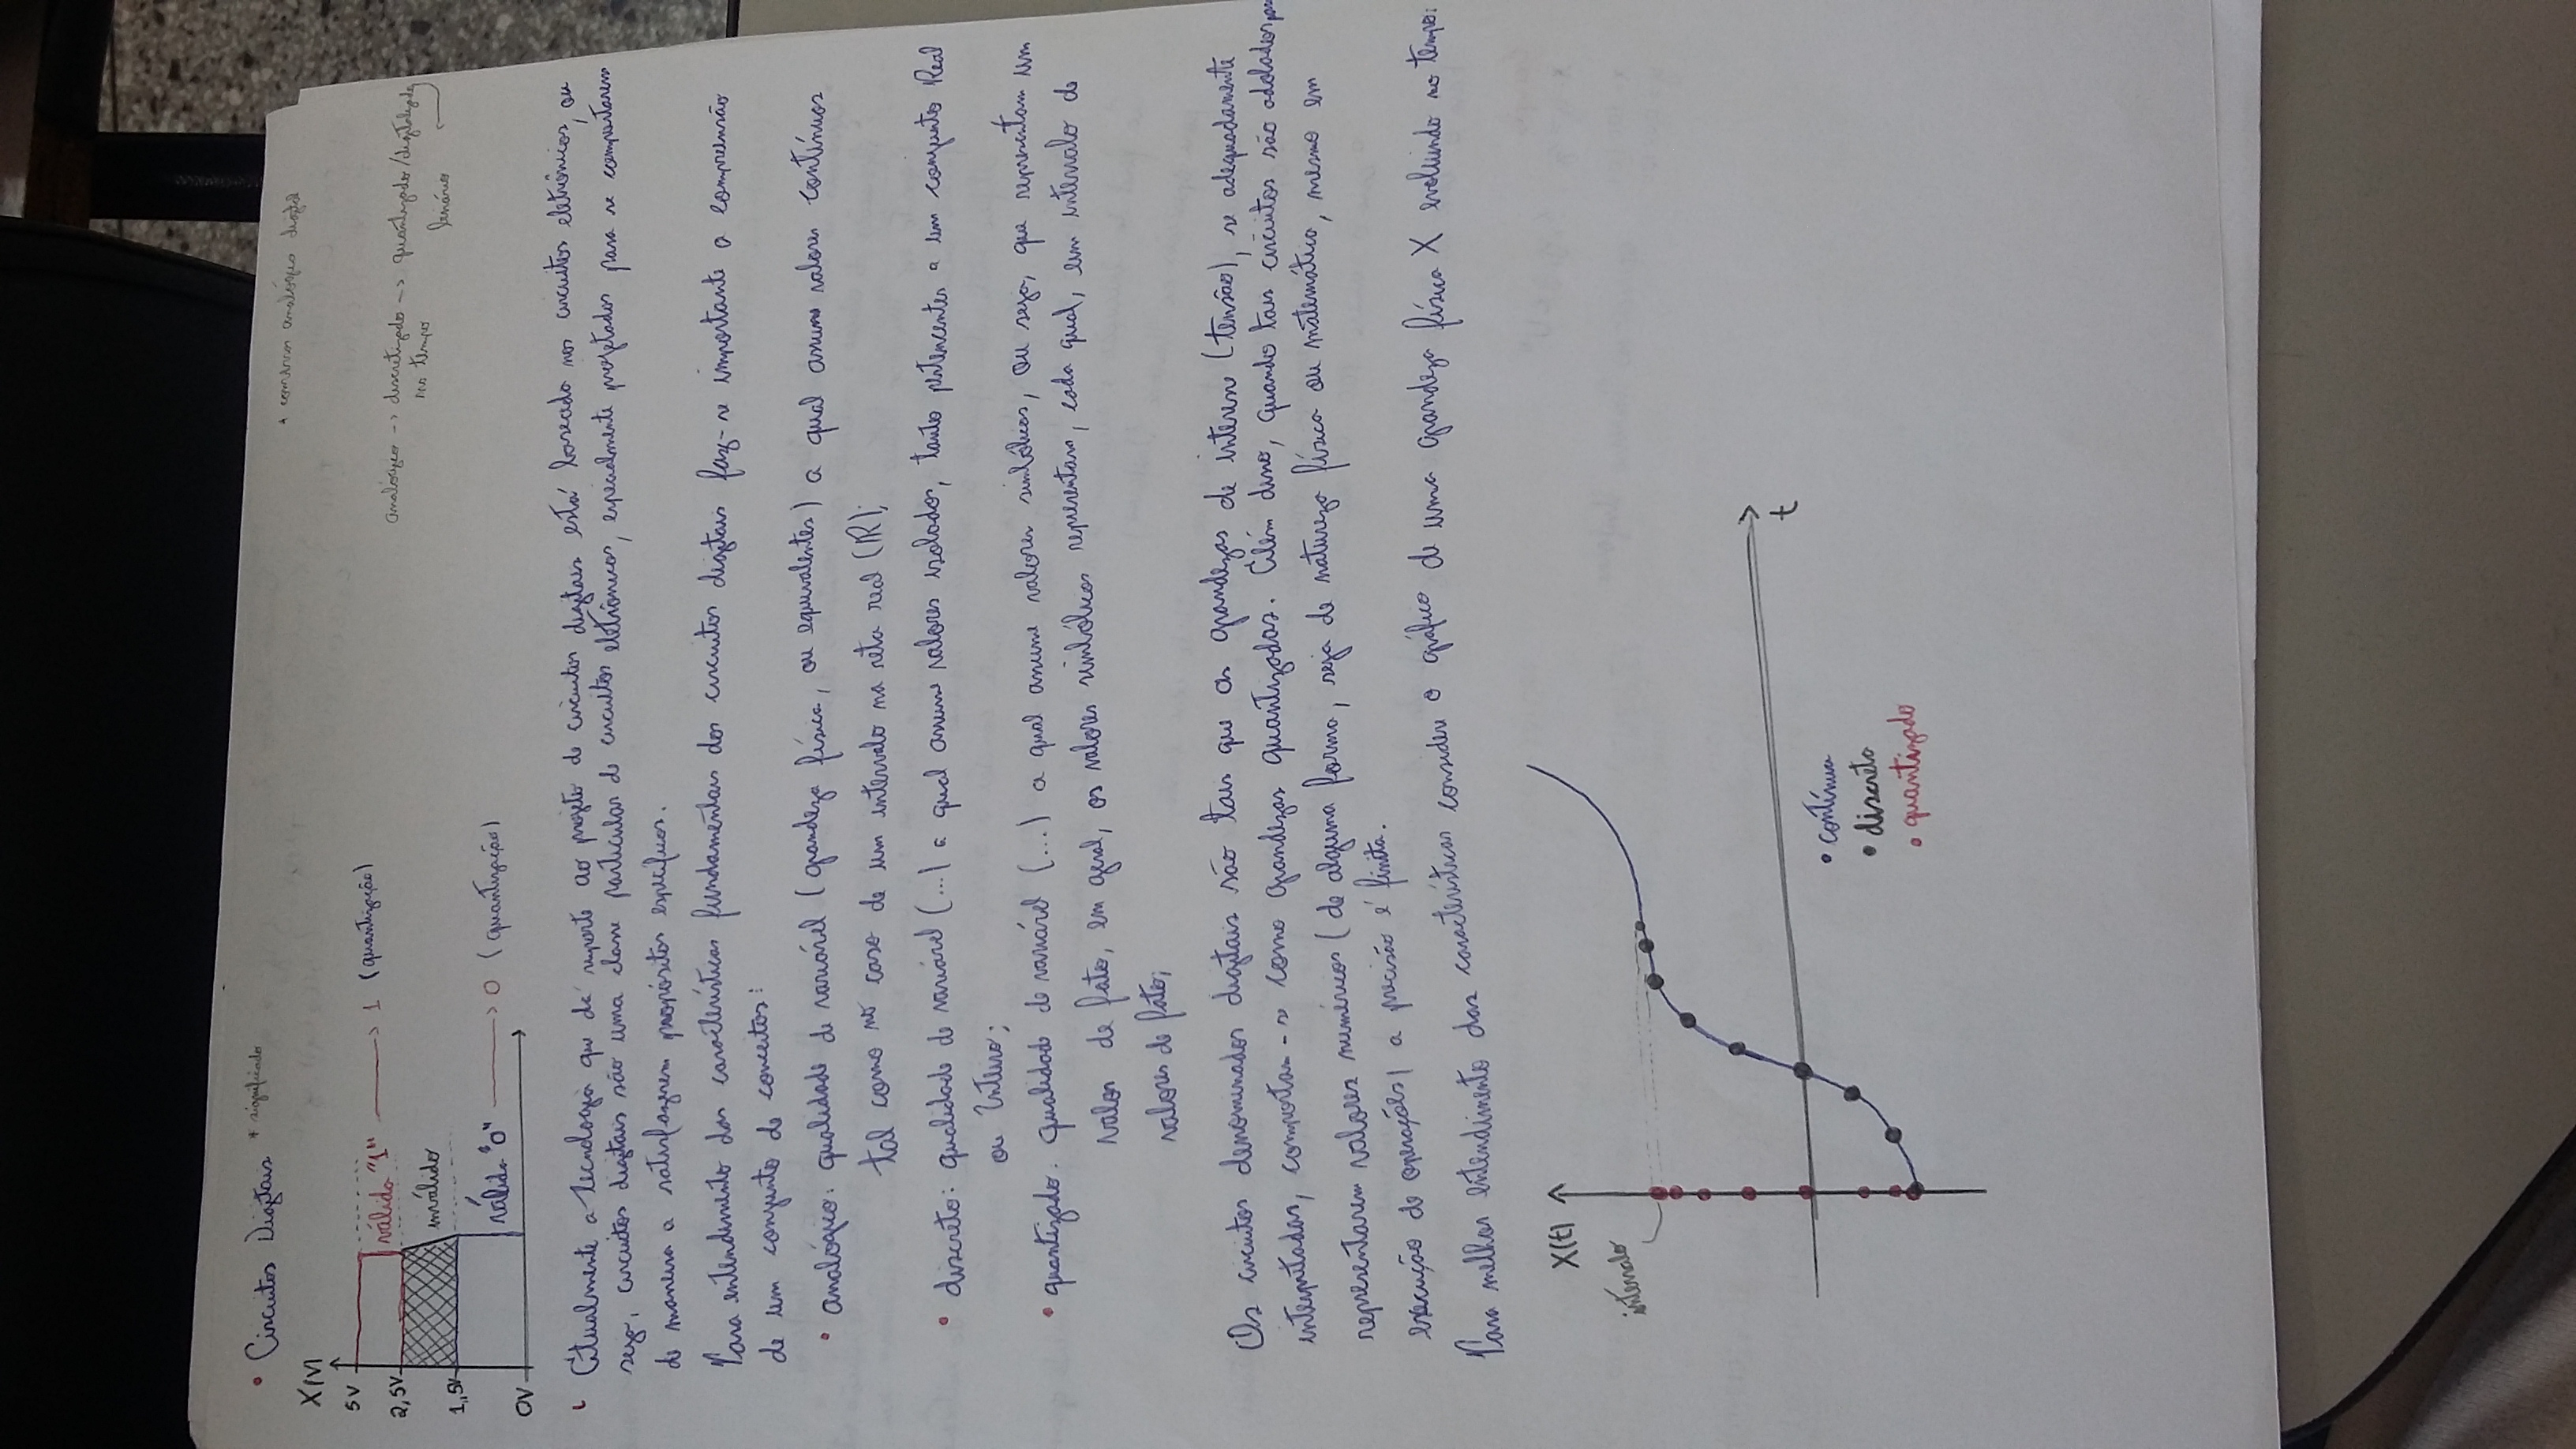 • Circuitos Digitais * significado
* conversor analógico digital
X(V)
5V
válido "1" → 1 (quantização)
2,5V
inválido
1,5V
válido "0" → 0 (quantização)
0V
analógico -> discretizado -> quantizado/digitalizado
no tempo
binário
Atualmente a tecnologia que dá suporte ao projeto de circuitos digitais está baseada nos circuitos eletrônicos, ou
seja, circuitos digitais são uma classe particular de circuitos eletrônicos, especialmente projetados para se comportarem
de maneira a satisfazerem propósitos específicos.
Para entendimento das características fundamentais dos circuitos digitais faz-se importante a compreensão
de um conjunto de conceitos:
• analógico: qualidade de variável (grandeza física, ou equivalentes) a qual assume valores contínuos
tal como no caso de um intervalo na reta real (ℝ);
• discreto: qualidade de variável (...) a qual assume valores isolados, tanto pertencentes a um conjunto Real
ou Inteiro;
• quantizado: qualidade de variável (...) a qual assume valores simbólicos, ou seja, que representam um
valor de fato, em geral, os valores simbólicos representam, cada qual, um intervalo de
valores de fato;
Os circuitos denominados digitais são tais que as grandezas de interesse (tensão), se adequadamente
interpretadas, comportam-se como grandezas quantizadas. Além disso, quando tais circuitos são adotados para
representarem valores numéricos (de alguma forma, seja de natureza física ou matemática, mesmo em
execução de operações) a precisão é finita.
Para melhor entendimento das características considere o gráfico de uma grandeza física X evoluindo no tempo:
X(t)
intervalo
t
• contínua
• discreta
• quantizado